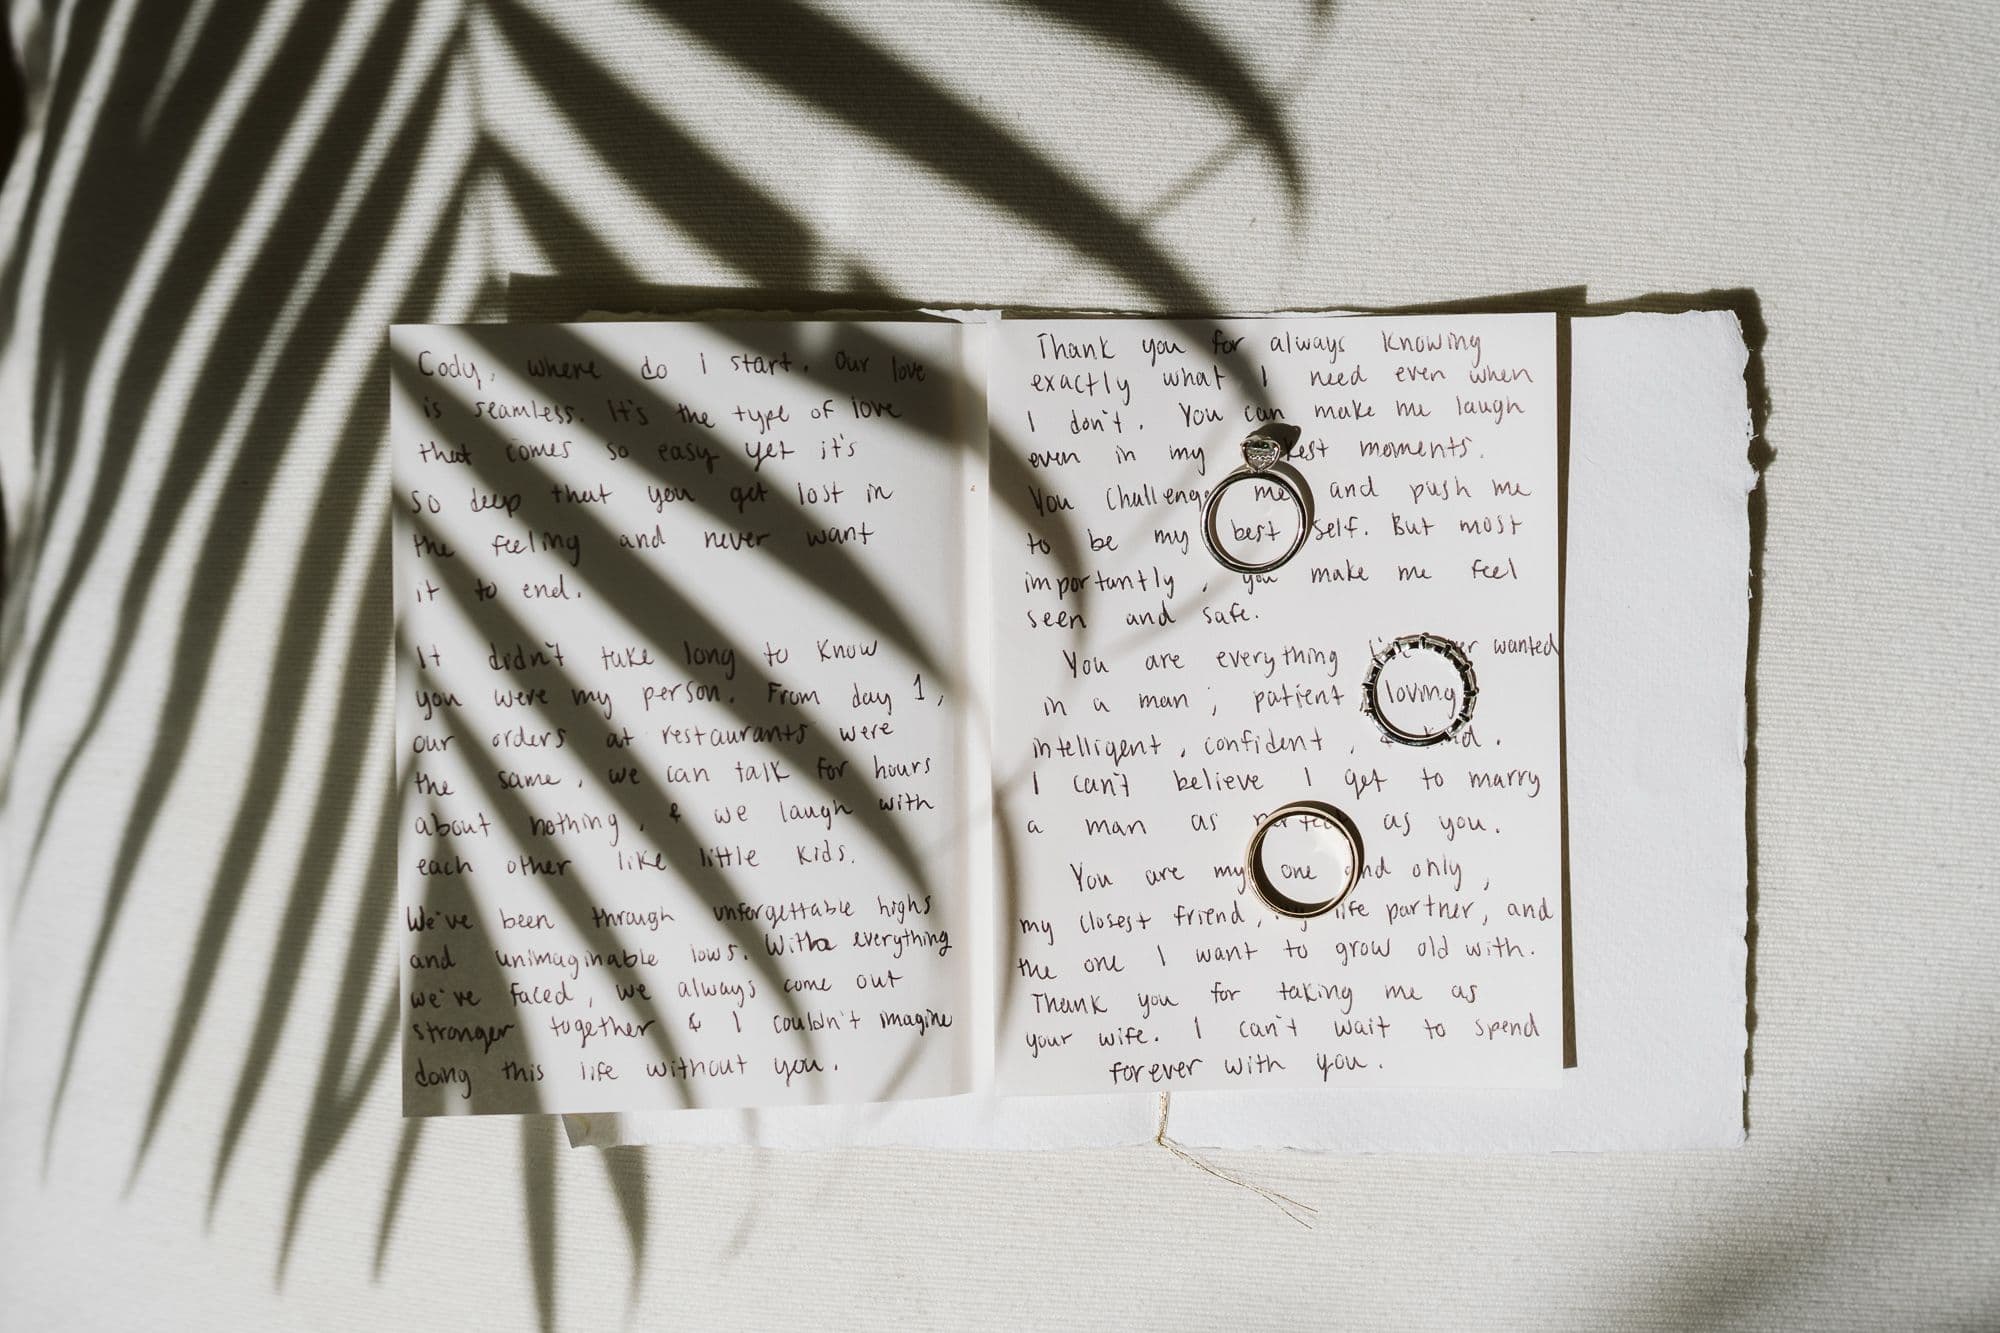 Cody, where do I start. Our love
is seamless. It's the type of love
that comes so easy yet it's
so deep that you get lost in
the feeling and never want
it to end.
It didn't take long to know
you were my person. From day 1,
our orders at restaurants were
the same, we can talk for hours
about nothing, & we laugh with
each other like little kids.
We've been through unforgettable highs
and unimaginable lows. With everything
we've faced, we always come out
stronger together & I couldn't imagine
doing this life without you.
Thank you for always knowing
exactly what I need even when
I don't. You can make me laugh
even in my moments.
You challenge me and push me
to be my best self. But most
importantly, you make me feel
seen and safe.
You are everything wanted
in a man; patient, loving
intelligent, confident, & kind.
I can't believe I get to marry
a man as perfect as you.
You are my one and only,
my closest friend, my life partner, and
the one I want to grow old with.
Thank you for taking me as
your wife. I can't wait to spend
forever with you.